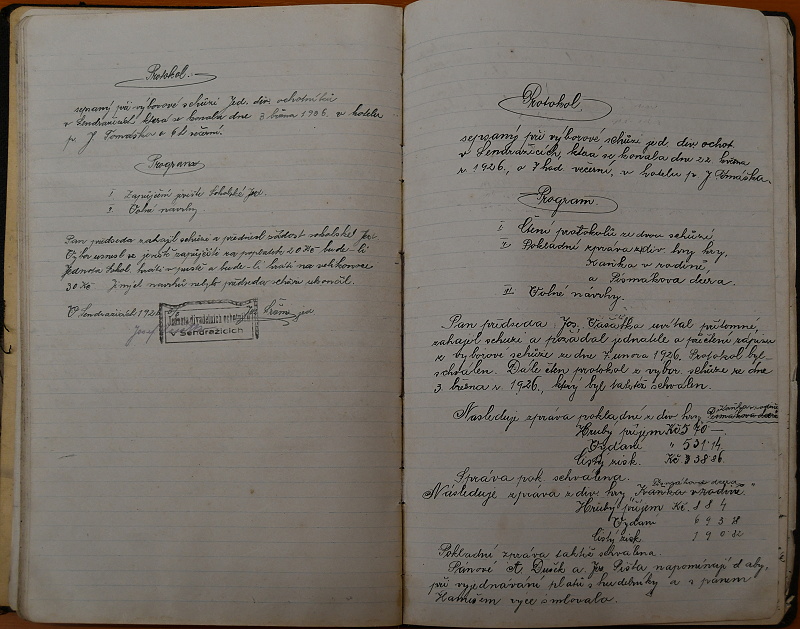 Protokol.
sepsaný při výborové schůzi Jed. div. ochotníků
v Sendražicích, která se konala dne 3 března 1926 v hotelu
p. J Tomáška o 6 h večerní.
Program
I. Zapůjčení jeviště Sokolské
2. Volné návrhy
Pan předseda zahájil schůzi a přednesl žádost sokolské
Výbor usnesl se jeviště zapůjčiti za poplatek 20 Kč bude-li
Jednota Sokol hráti v pustě a bude-li hráti na
30 Kč Jiných návrhů nebylo předseda schůzi ukončil.
V Sendražicích 1926
Josef
Jednota divadelních ochotníků
v Sendražicích
Protokol.
sepsaný při výborové schůze jed. div. ochot.
v Sendražicích, ktará se konala dne 22 března
r 1926., o 7 hod večerní, v hotelu p. J Tomáška.
Program.
I Čtení protokolů ze dvou schůzí
II Pokladní zpráva z div. hry hry,
Kaňka v rodině
a Písmákova dcera.
III Volné návrhy.
Pan předseda Jos. Vašátka uvítal přítomné,
zahájil schůzi a požádal jednatele o přečtení zápisu
z výborové schůze ze dne 7. února 1926. Protokol byl
schválen. Dále čten protokol z výbor. schůze ze dne
3. března r. 1926., který byl taktéž schválen.
Kaňka v rodině
Následuje zpráva pokladne z div. hry Písmákova dcera
Hrubý příjem Kč 570 —
Vydání " 531 14
čistý zisk. Kč 38 86.
Správa pok. schválena.
Písmákova dcera
Následuje zpráva z div. hry "Kaňka v rodině"
Hrubý příjem Kč. 884
Vydání 693 18
čistý zisk 190 82
Pokladní zpráva taktéž schválena.
Pánové A. Dušek a Jos Pišta napomínají aby,
při vyjednávání platů s hudebníky a s pánem
více smlouvala.